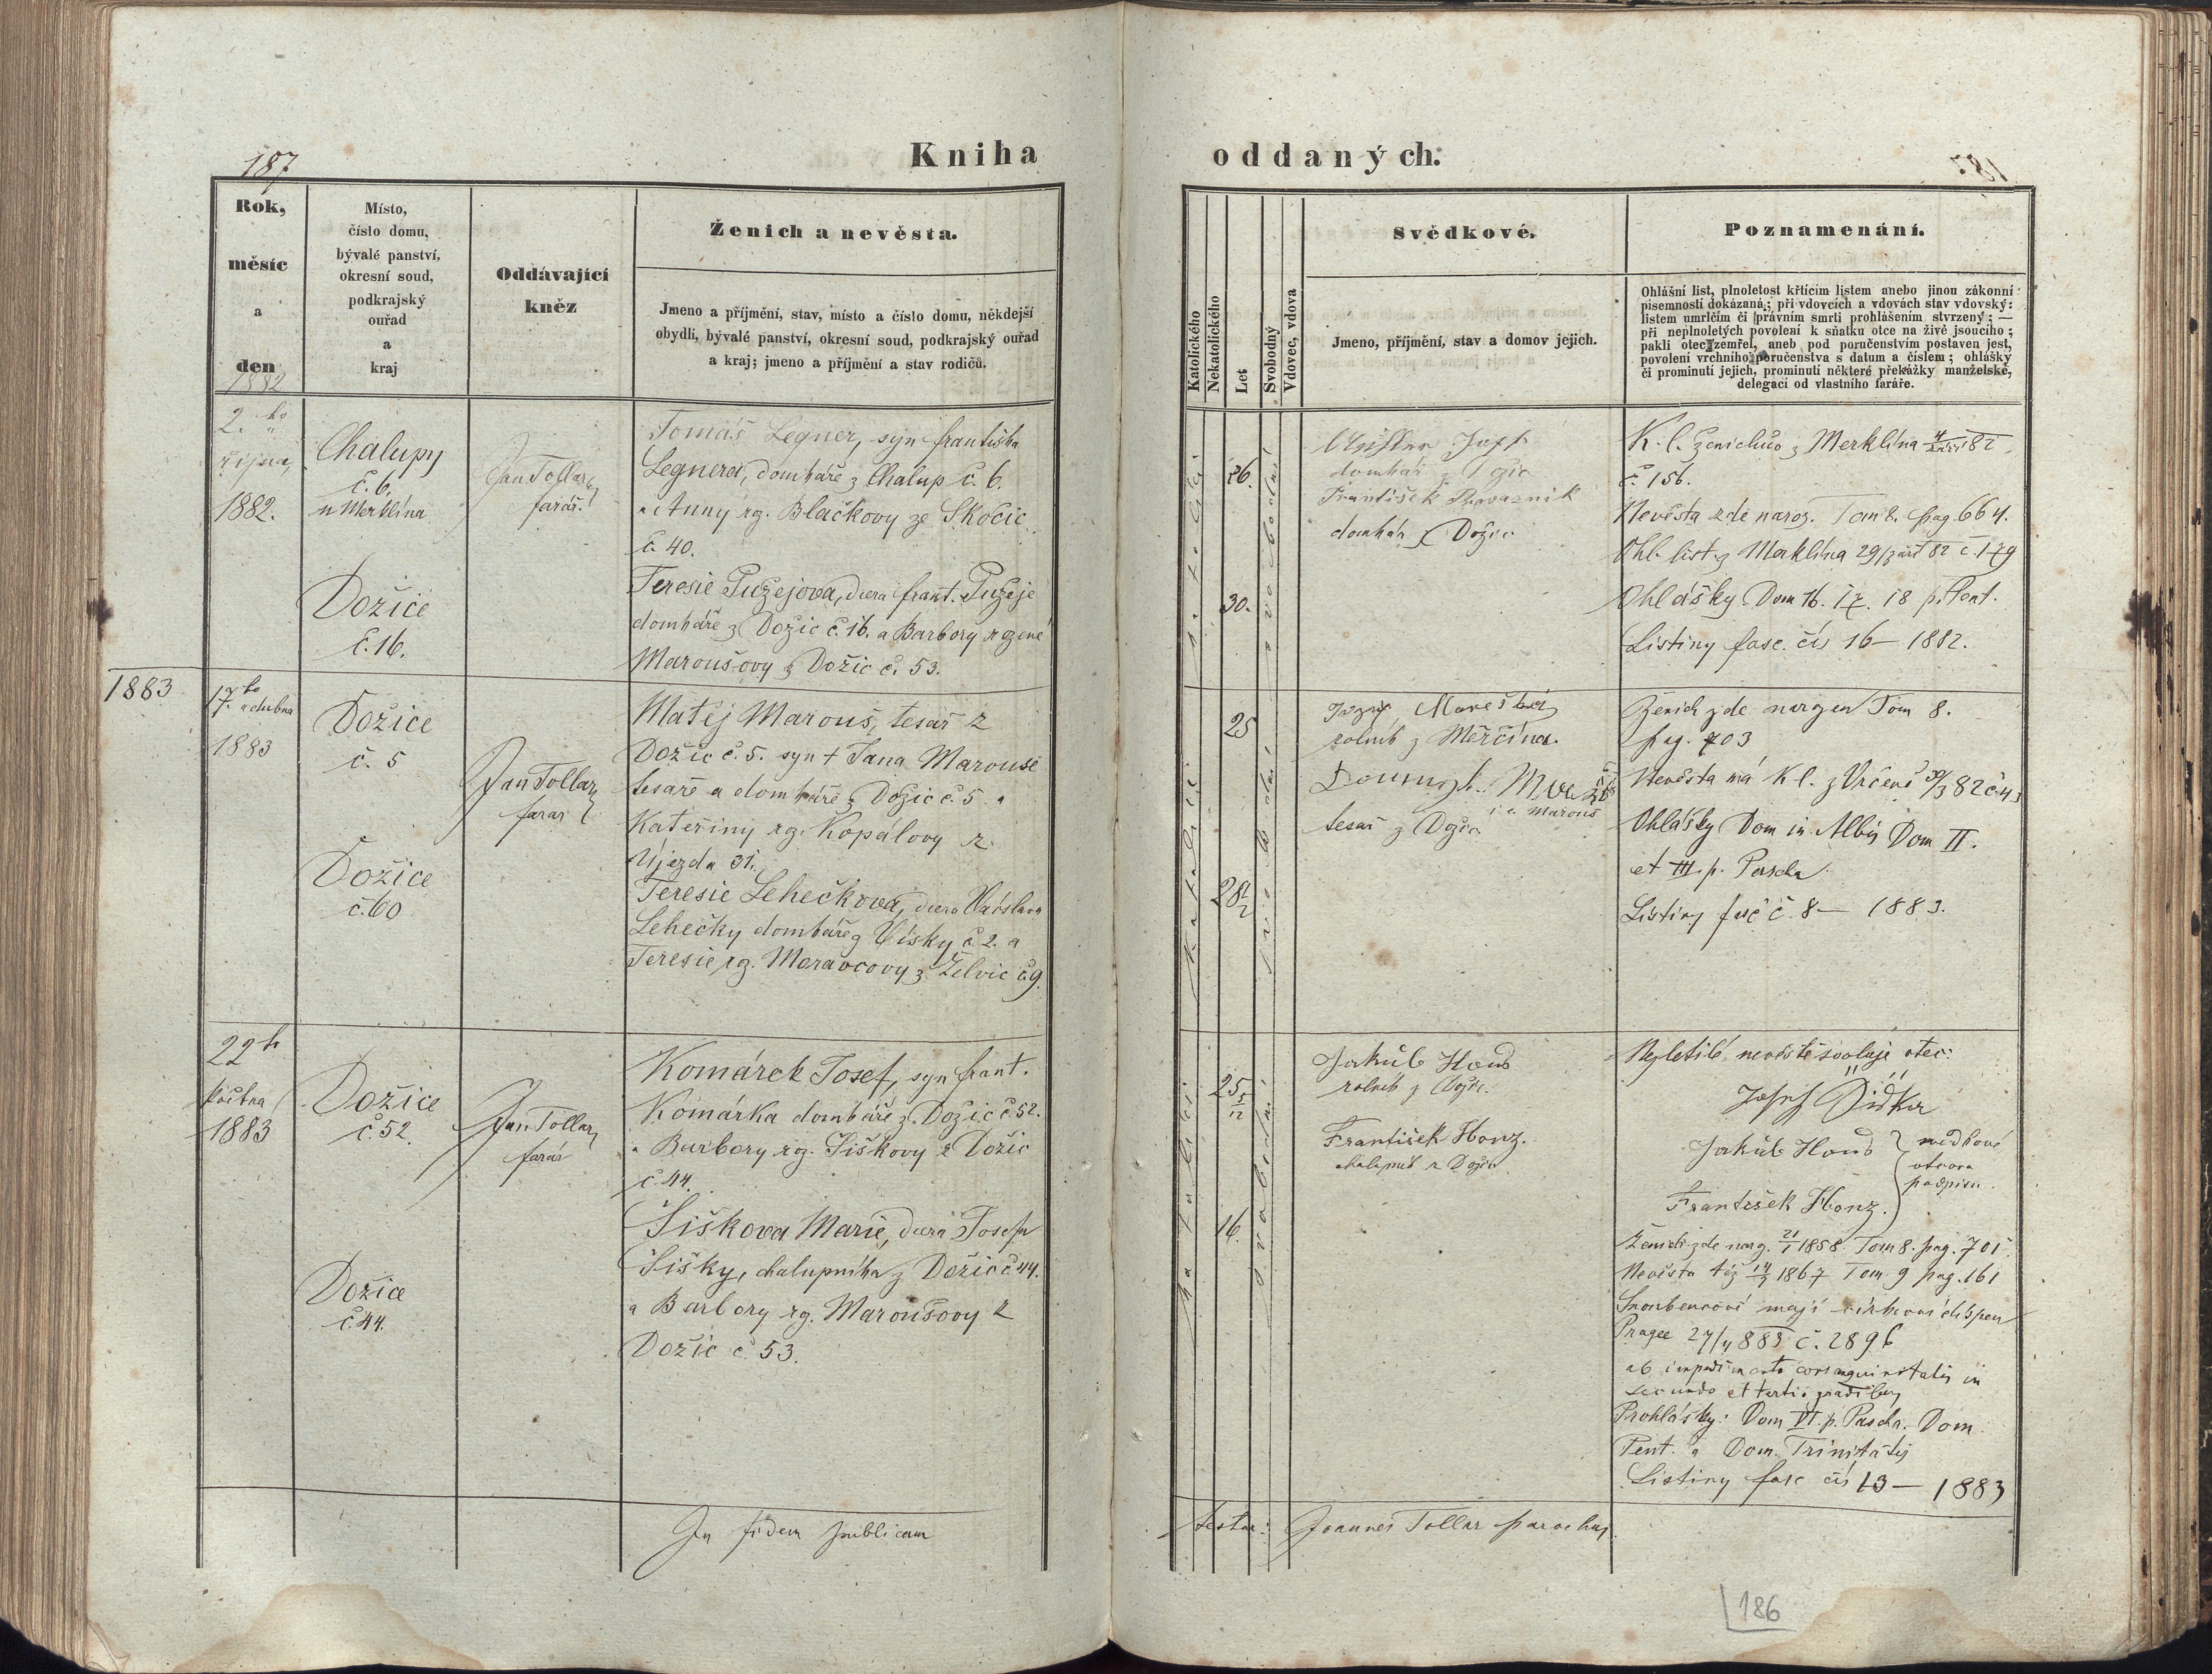 187
Kniha
oddaných.
Rok,
měsíc
a
den
Místo,
číslo domu,
bývalé panství,
okresní soud,
podkrajský
ouřad
a
kraj
Oddávající
kněz
Ženich a nevěsta.
Jmeno a příjmění, stav, místo a číslo domu, někdejší
obydlí, bývalé panství, okresní soud, podkrajský ouřad
a kraj; jmeno a příjmění a stav rodičů.
1882
2.
října
1882.
Chalupy
č. 6.
u Merklína
Dožice
č. 16.
Jan Tollar
farář.
Tomáš Legner, syn františka
Legnera, domkáře z Chalup č. 6.
a Anny rz. Blačkovy ze Skočic
č. 40.
Teresie Pužejova, dcera frant. Pužeje
domkáře z Dožic č. 16. a Barbory rozené
Maroušovy z Dožic č. 53.
1883
17ho dubna
1883
Dožice
č. 5
Dožice
č. 60
Jan Tollar
farář
Matěj Marouš, tesař z
Dožic č. 5. syn † Jana Marouše
tesaře a domkáře z Dožic č. 5. a
Kateřiny rz. Kopálovy z
Újezda 31.
Teresie Lehečkova, dcera Václava
Lehečky domkáře z Vísky č. 2. a
Teresie rz. Moravcovy z Želvic č. 9.
22ho
května
1883
Dožice
č. 52.
Dožice
č. 44.
Jan Tollar
farář
Komárek Josef, syn frant.
Komárka domkáře z Dožic č. 52.
a Barbory rz. Šiškovy z Dožic
č. 44.
Šiškova Marie, dcera Josefa
Šišky, chalupníka z Dožic č. 44.
a Barbory rz. Maroušovy z
Dožic č. 53.
In fidem publicam
Katolického
Nekatolického
Let
Svobodný
Vdovec, vdova
Svědkové.
Jmeno, příjmění, stav a domov jejich.
Poznamenání.
Ohlášní list, plnoletost křtícím listem anebo jinou zákonní
písemností dokázaná; při vdovcích a vdovách stav vdovský:
listem umrlčím či správním smrti prohlášením stvrzený; —
při neplnoletých povolení k sňatku otce na živě jsoucího;
pakli otec zemřel, aneb pod poručenstvím postaven jest,
povolení vrchního poručenstva s datum a číslem; ohlášky
či prominutí jejich, prominutí některé překážky manželské,
delegací od vlastního faráře.
26.
30.
domkář z Dožic
František
domkář z Dožic
K. l. ženichův z Merklína 4/září 82
č. 156.
Nevěsta zde naroz. Tom 8. pag. 664.
Ohl. list z Merklína 29/září 82 č. 179
Ohlášky Dom 16. 17. 18 p. Pent.
Listiny fasc. čís 16 — 1882.
25
28 1/2
rolník z Měrčína.
tesař z Dožic
Ženich zde narozen Tom 8.
pag. 703
Nevěsta má K l. z Vrčeně 30/3 82 č. 43
Ohlášky Dom in Albis Dom II.
et III. p. Pascha
Listiny fasc č. 8 — 1883.
25 5/12
16.
Jakub
rolník z Dožic.
František Honz.
chalupník z Dožic
Nezletilé nevěstě svoluje otec:
Josef Šiška
Jakub
František Honz.
svědkové
otcova
podpisu.
Ženich zde narz. 21/1 1858. Tom 8. pag. 701.
Nevěsta též 14/3 1867 Tom 9 pag. 161
Snoubencové mají církevní dispen
Pragae 27/4 883 č. 2896
ab impedimento consanguinitatis in
secundo et tertio gradibus
Prohlášky: Dom VI. p. Pascha. Dom
Pent. a Dom. Trinitatis
Listiny fasc čís 13 — 1883
testor: Joannes Tollar parochus.
186